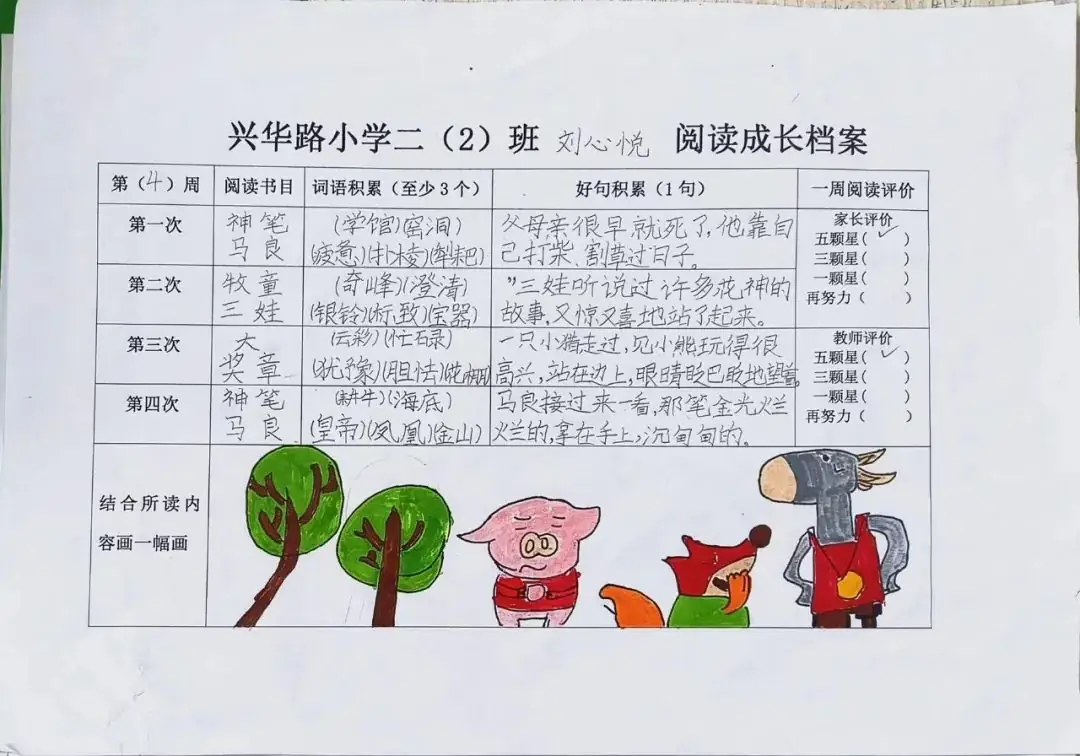 兴华路小学二（2）班 刘心悦 阅读成长档案
第（4）周 阅读书目 词语积累（至少3个） 好句积累（1句） 一周阅读评价
第一次
神笔
马良
(学馆)(窑洞)
(疲惫)(扑棱)(犁耙)
父母亲很早就死了,他靠自
己打柴、割草过日子。
第二次
牧童
三娃
(奇峰)(澄清)
(银铃)(标致)(宝器)
"三娃听说过许多花神的
故事,又惊又喜地站了起来。
第三次
大
奖章
(云彩)(忙碌)
(犹豫)(胆怯)(花棚)
一只小猪走过,见小熊玩得很
高兴,站在边上,眼睛眨巴眨地望着。
第四次
神笔
马良
(耕牛)(海底)
(皇帝)(凤凰)(金山)
马良接过来一看,那笔金光灿
灿烂的,拿在手上,沉甸甸的。
家长评价
五颗星(✓)
三颗星( )
一颗星( )
再努力( )
教师评价
五颗星(✓)
三颗星( )
一颗星( )
再努力( )
结合所读内
容画一幅画